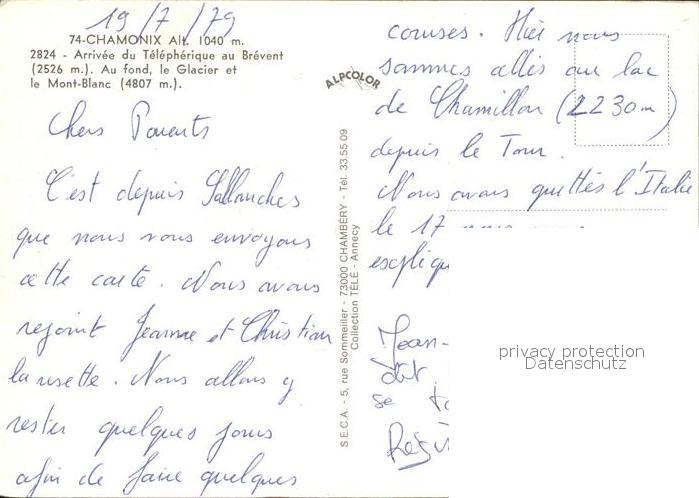 19/7/79
74-CHAMONIX Alt. 1040 m.
2824 - Arrivée du Téléphérique au Brévent
(2526 m.). Au fond, le Glacier et
le Mont-Blanc (4807 m.).
Chers Parents
C'est depuis Sallanches
que nous vous envoyons
cette carte. Nous avons
rejoint Jeanne et Christian
la usette. Nous allons y
rester quelques jours
afin de faire quelques
ALPCOLOR
S.E.C.A. - 5, rue Sommeiller - 73000 CHAMBÉRY - Tél. 33.55 09
Collection TÉLÉ - Annecy
courses. Hier nous
sommes allés au lac
de Chamillon (2230m)
depuis le Tour.
Nous avons quittés l'Italie
le 17
expliqu
Jean-
dit
se
Régi
privacy protection
Datenschutz